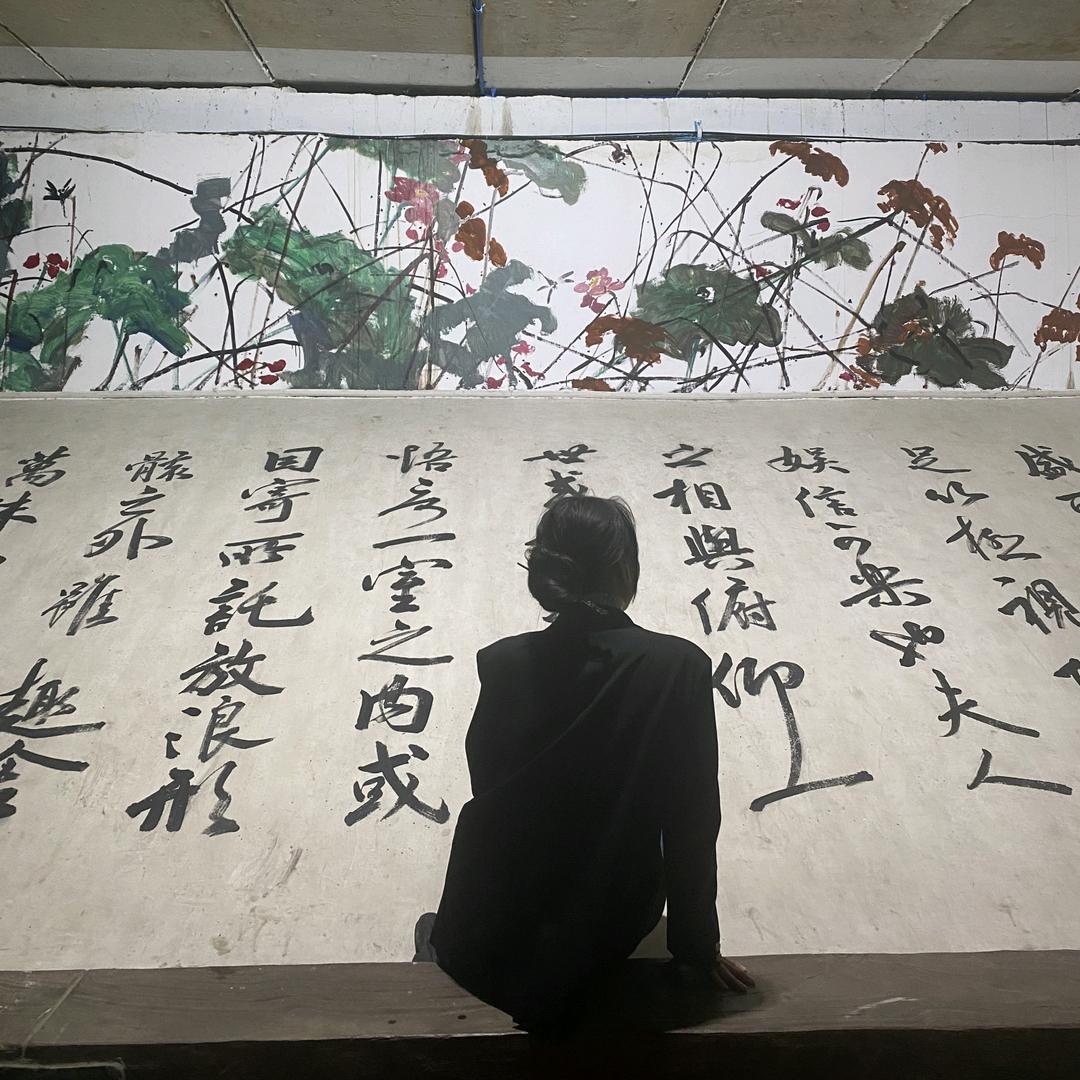 盛
足以極視
娛信可樂也夫人
之相與俯仰一
世或
悟言一室之內或
因寄所託放浪形
骸之外雖趣舍
萬殊